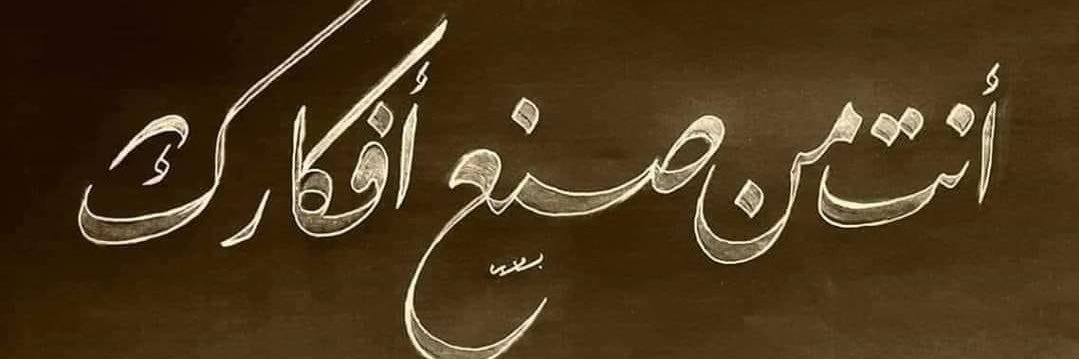 أنت من صنع أفكارك